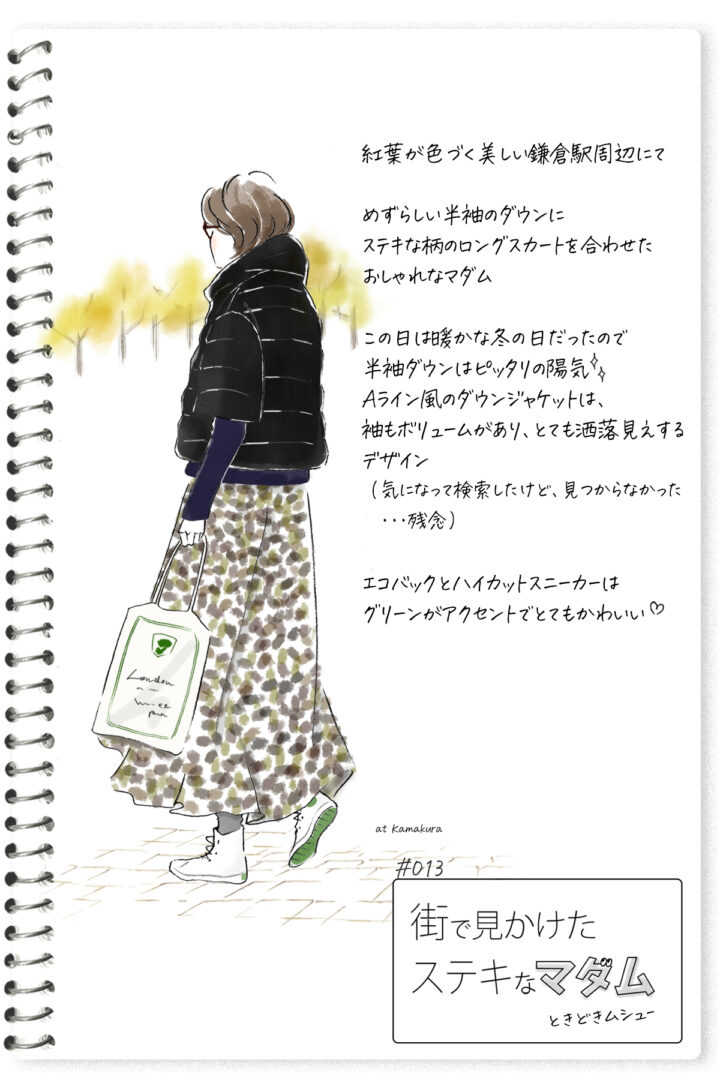 紅葉が色づく美しい鎌倉駅周辺にて
めずらしい半袖のダウンに
ステキな柄のロングスカートを合わせた
おしゃれなマダム
この日は暖かな冬の日だったので
半袖ダウンはピッタリの陽気
Aライン風のダウンジャケットは、
袖もボリュームがあり、とても洒落見えする
デザイン
(気になって検索したけど、見つからなかった
・・・残念)
エコバックとハイカットスニーカーは
グリーンがアクセントでとてもかわいい♡
London
at Kamakura
#013
街で見かけた
ステキなマダム
ときどきムシュー